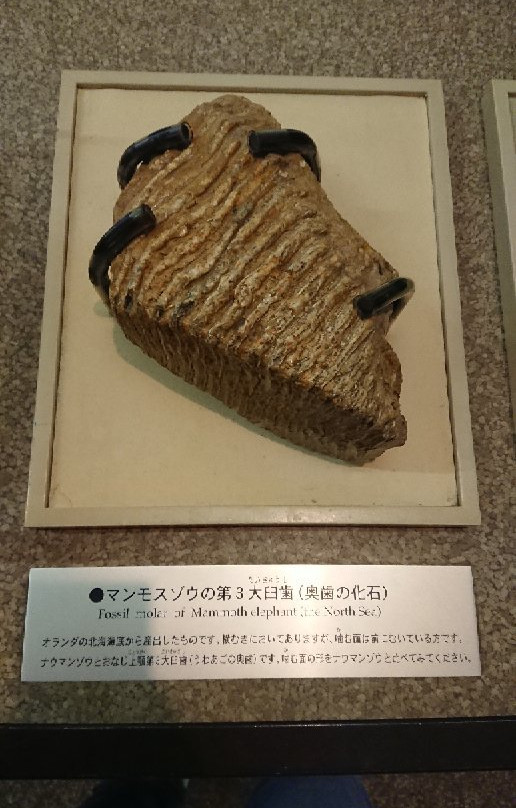 だいきゅうし
●マンモスゾウの第3大臼歯（奥歯の化石）
Fossil molar of Mammoth elephant (the North Sea)
か
オランダの北海海底から産出したものです。横むきにおいてありますが、噛む面は前にむいている方です。
じょうがく だいきゅうし か
ナウマンゾウとおなじ上顎第3大臼歯（うわあごの奥歯）です。噛む面の形をナウマンゾウとくらべてみてください。